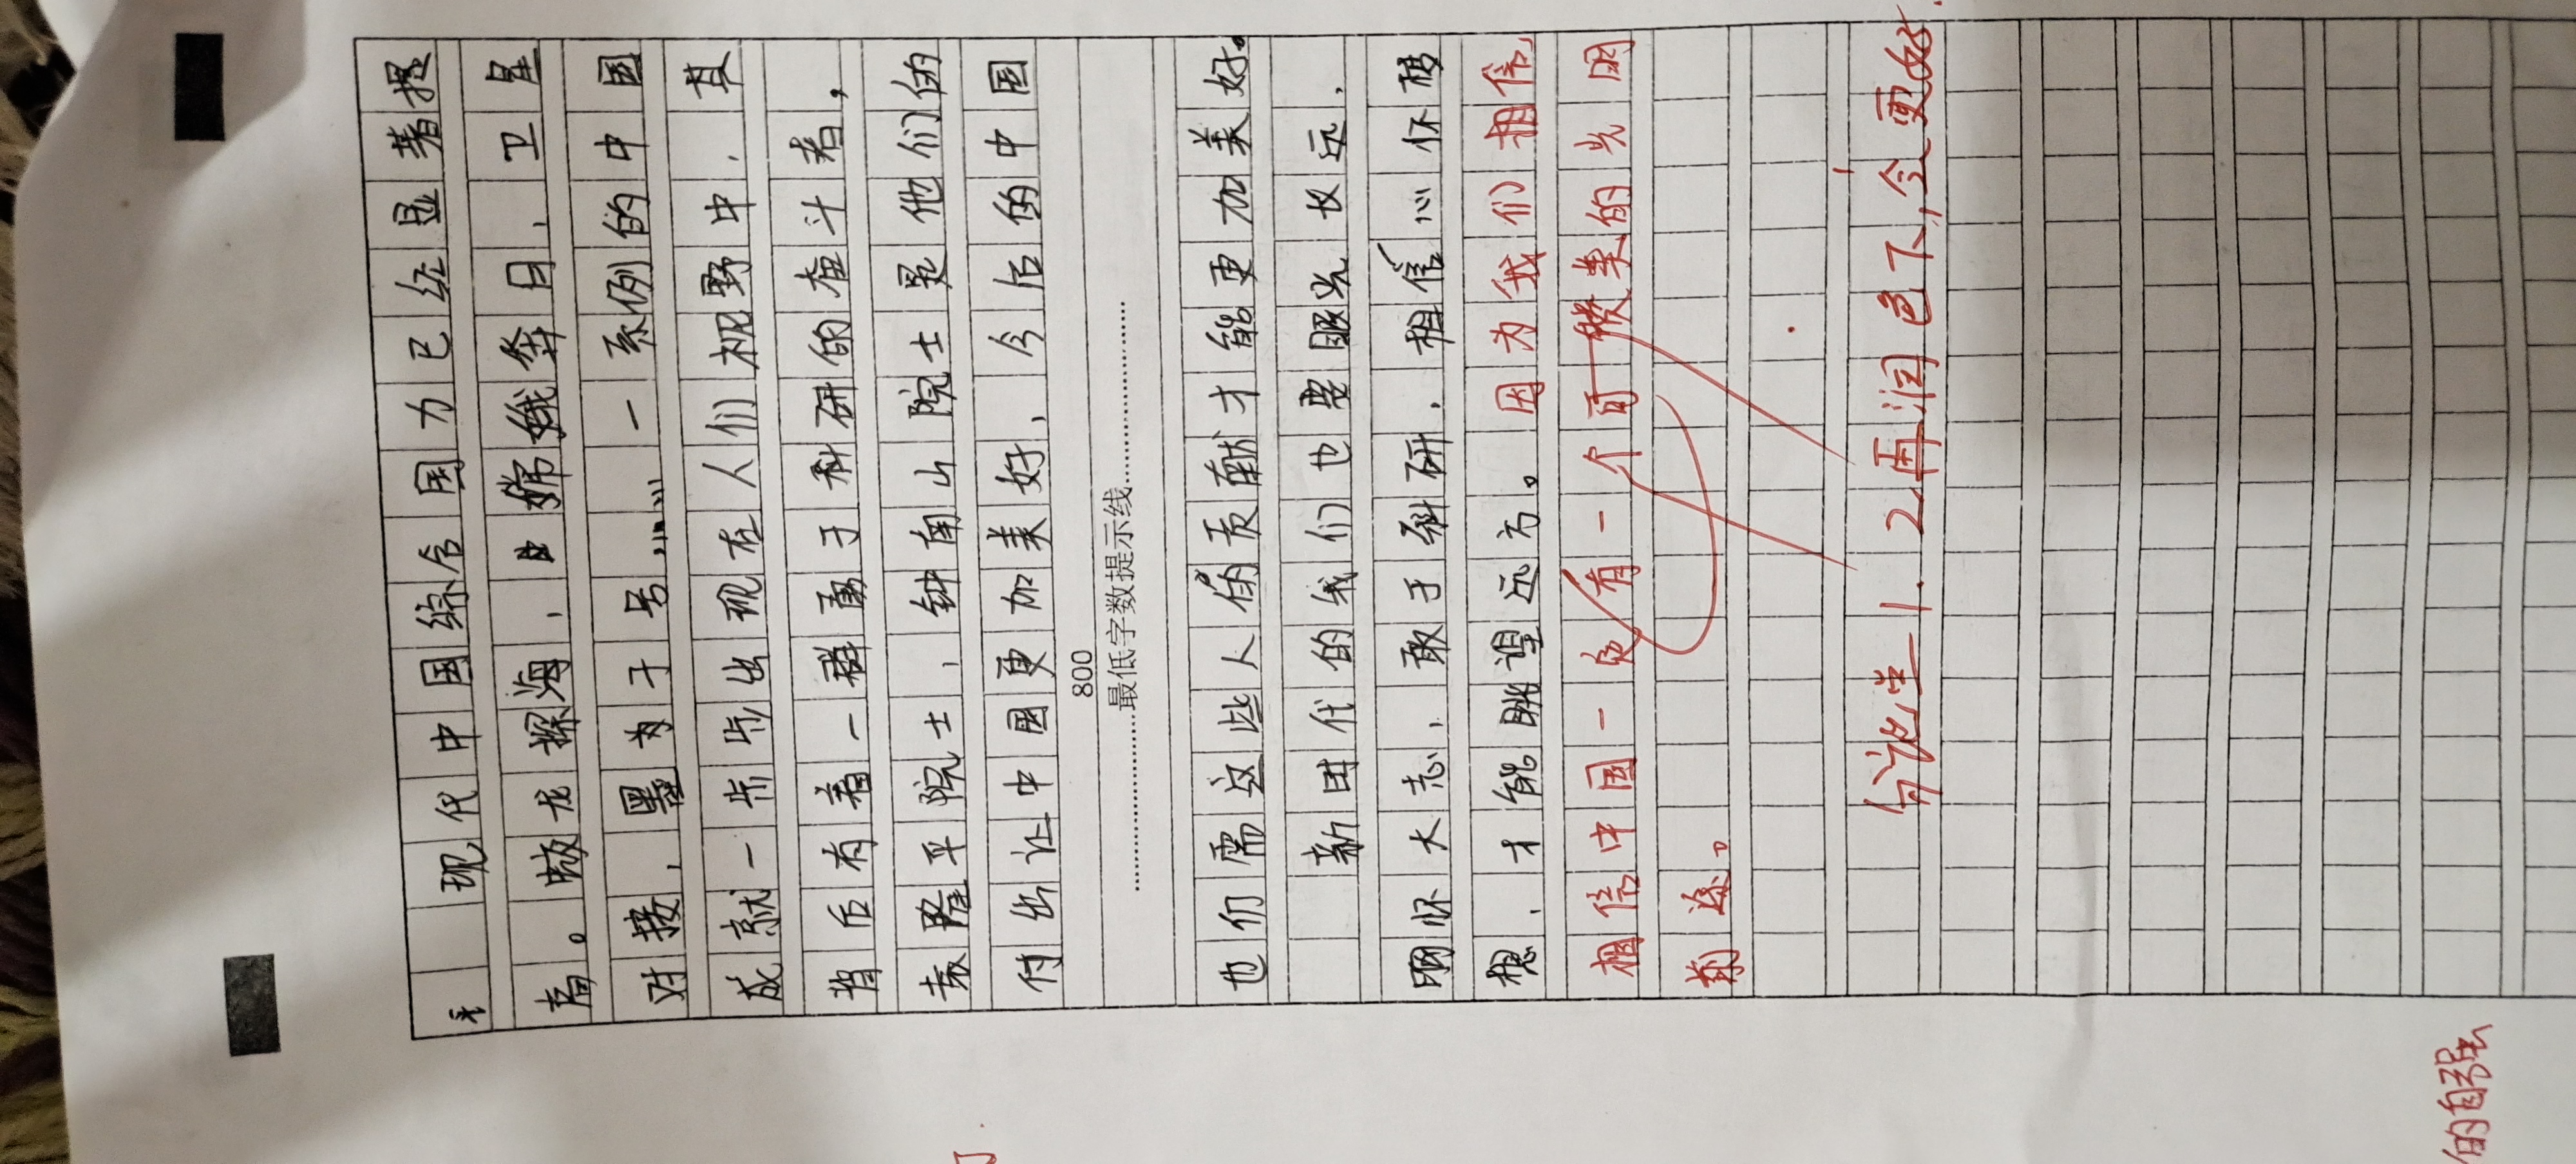 现代中国综合国力已经显著提
高。蛟龙探海、嫦娥奔月、卫星
对接、墨子号……一系例的中国
成就一步步出现在人们视野中，其
背后有着一群勇于科研的奋斗者，
袁隆平院士、钟南山院士是他们的
付出让中国更加美好，今后的中国
800
最低字数提示线
也仍需这些人的贡献才能更加美好。
新时代的我们也要眼光长远，
胸怀大志，敢于科研，相信心怀梦
想，才能眺望远方。因为我们相信，
相信中国一定有一个可赞美的光明
前途。
分论点1.2再润色下，会更好.
的自强